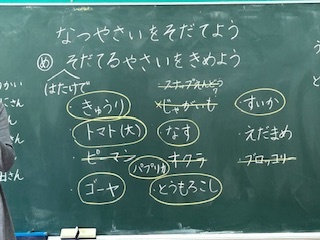 なつやさいをそだてよう
め そだてるやさいをきめよう
はたけで
スナップえんどう
・きゅうり ・じゃがいも ・すいか
・トマト(大) ・なす ・えだまめ
・ピーマン パプリカ オクラ ・ブロッコリー
・ゴーヤ ・とうもろこし